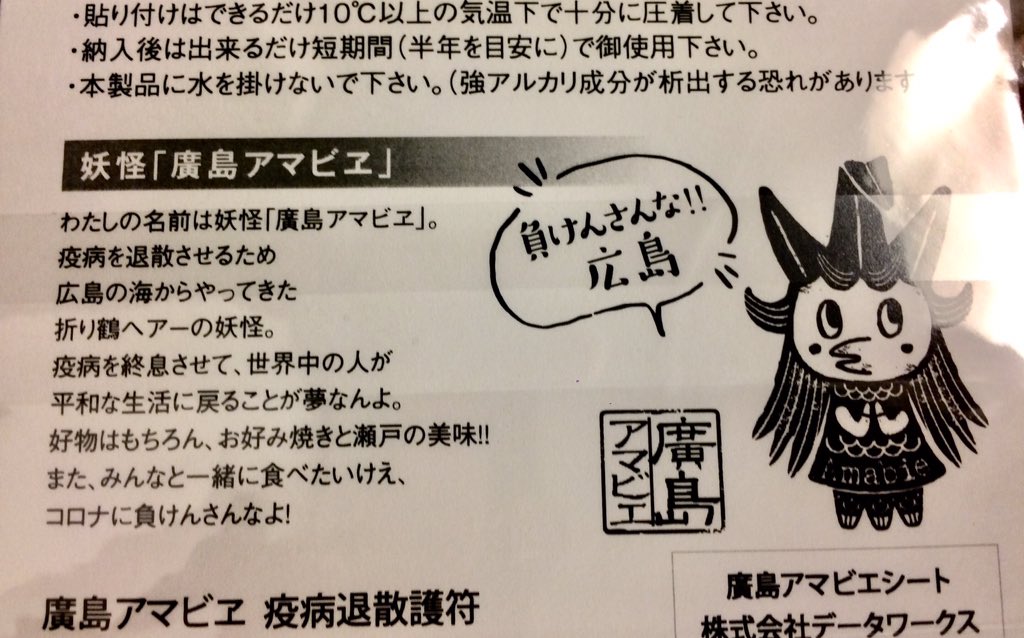 ・貼り付けはできるだけ10℃以上の気温下で十分に圧着して下さい。
・納入後は出来るだけ短期間(半年を目安に)で御使用下さい。
・本製品に水を掛けないで下さい。(強アルカリ成分が析出する恐れがあります
妖怪「廣島アマビヱ」
わたしの名前は妖怪「廣島アマビヱ」。
疫病を退散させるため
広島の海からやってきた
折り鶴ヘアーの妖怪。
疫病を終息させて、世界中の人が
平和な生活に戻ることが夢なんよ。
好物はもちろん、お好み焼きと瀬戸の美味!!
また、みんなと一緒に食べたいけえ、
コロナに負けんさんなよ!
負けんさんな!!
広島
廣島
アマビエ
Amabie
廣島アマビヱ 疫病退散護符
廣島アマビエシート
株式会社データワークス